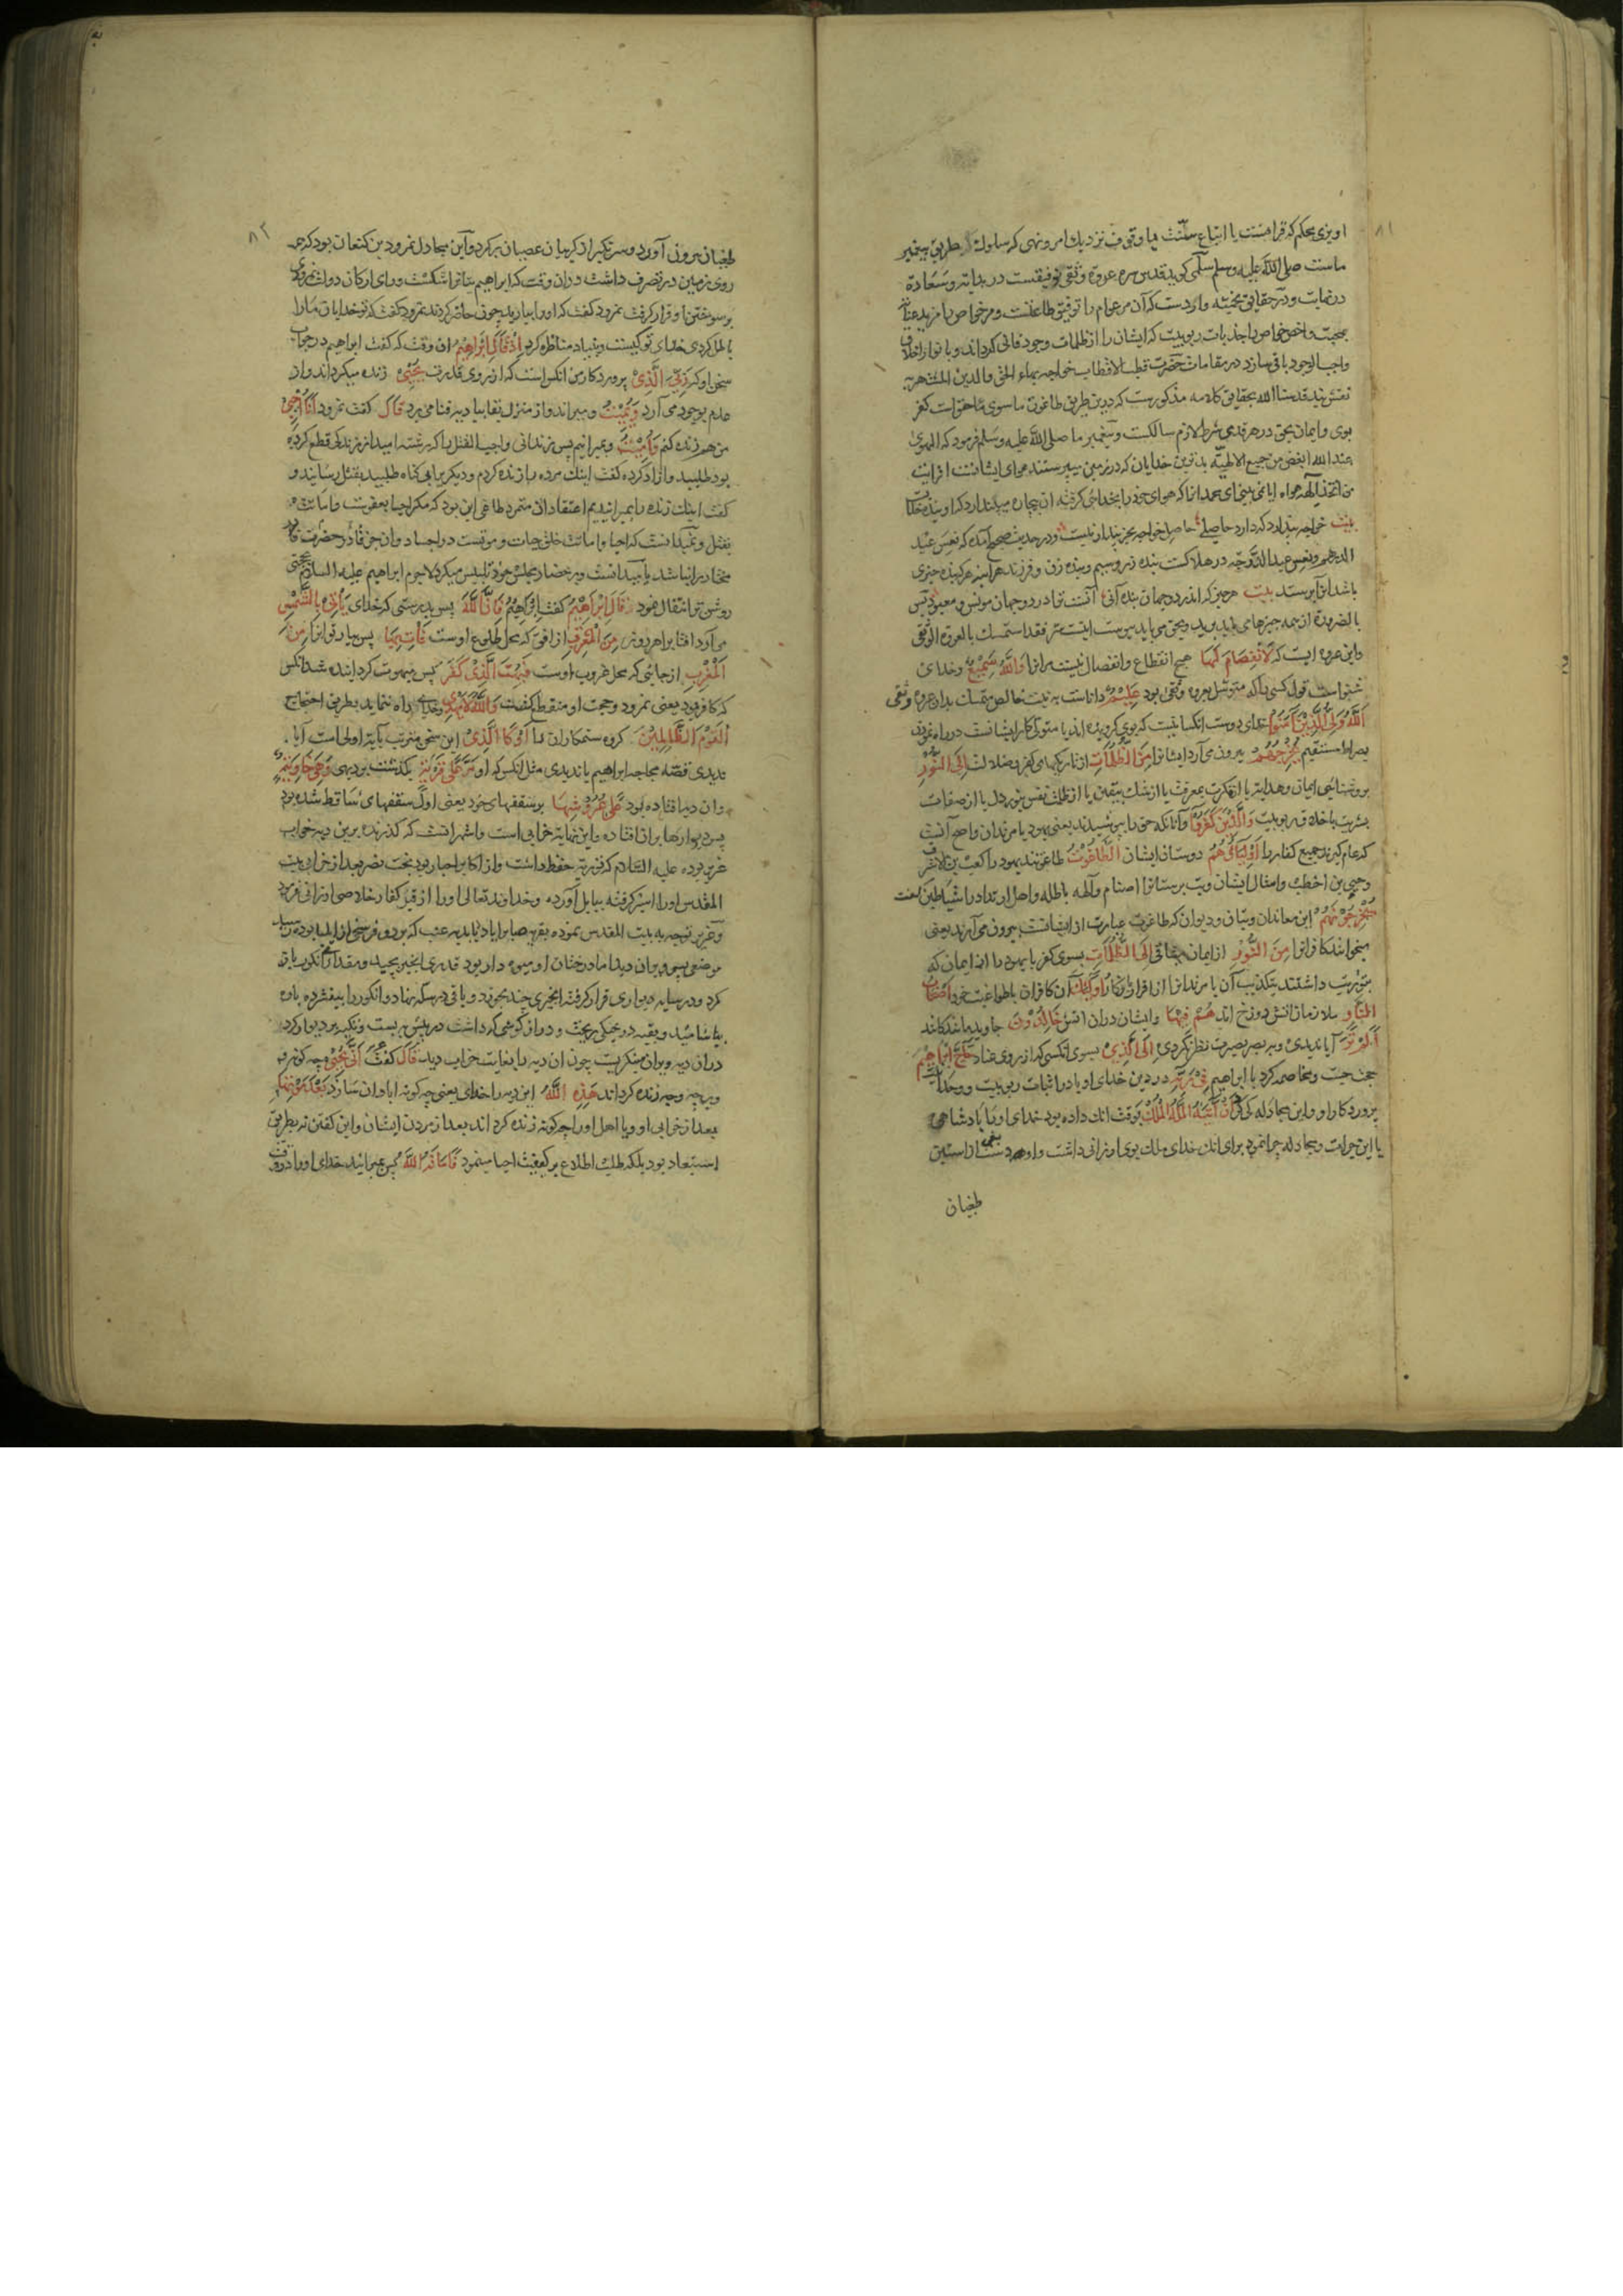 ٨١
او یزی محکم که قرانست یا اتباع سنّت یا وقوف نزدیك امر و نهی که سلوك طریق پیغمبر
ماست صلی الله علیه وسلم سلمی کوید قدس سره عروة وثقی توفیقست در بدایة وسعادة
در نهایت ودر حقایق وارد ست که آن مر عوام را توفیق طاعتست ومر خواص را مزید عنایة
بمحبت واخص خواص را جذبات ربوبیت که ایشان را از ظلمات وجود فانی کرداند وبانوار اخلاق
واجب الوجود باقی سازد در مقامات حضرت قطب الاقطاب خواجه بهاء الحق والدین المشتهر به
نقش بند قدسنا الله بحقایق کلامه مذکورست که درین طریق طاغوت ماسوی حق است کفر
بوی وایمان بحق در هر قدمی شرط لازم سالکست وپیغمبر ما صلی الله علیه وسلم فرمود که الهوی
عند الله ابغض من جمیع الالهیه بدترین خدایان که در زمین میپرستند هوای ایشانست افرایت
من اتخذ الهه هواه ایا نمی بینی ای محمد انرا که هوای خود را بخدایی کرفته ان بیچاره میپندارد که او بنده خداست
بیت خواجه پندارد که دارد حاصلی حاصل خواجه بجز پندار نیست ودر حدیث صحیح آمده که تعس عبد
الدرهم وتعس عبد الزوجة در هلاکست بنده زر وسیم وبنده زن وفرزند هر آینه هر که بنده چیزی
باشد انرا پرستد بیت هر چیز که اندر دو جهان بنده آنی آنست ترا در دو جهان مونس ومعبود پس
بالضروره از همه چیزها می باید برید وبحق می باید پیوست فقد استمسك بالعروة الوثقی
واین عروه ایست که لَا انْفِصَامَ لَهَا هیچ انقطاع وانفصال نیست مر انرا وَاللّٰهُ سَمِيعٌ وخدای
شنواست قول کسی را که متوسل بعروه وثقی بود عَلِيمٌ داناست به نیت خالص متمسك بدان عروه وثقی
اَللّٰهُ وَلِيُّ الَّذِينَ آمَنُوا خدای دوست انکسانیست که بوی کرویده اند یا متولی کار ایشانست در راه نمودن
بصراط مستقیم يُخْرِجُهُمْ بیرون می آرد ایشانرا مِنَ الظُّلُمَاتِ از تاریکیهای کفر وضلالت اِلَى النُّورِ
بروشنایی ایمان وهدایة یا از نکرت بمعرفت یا از شك بیقین یا از ظلمت نفس بنور دل یا از صفات
بشریت باخلاق ربوبیت وَالَّذِينَ كَفَرُوا وآنانکه حق را بپوشیدند یعنی یهود یا مرتدان واصح آنست
که عام کیرند جمیع کفار را اَوْلِيَاؤُهُمُ دوستان ایشان الطَّاغُوتُ طاغوتند یهود را کعب بن الاشرف
وحیی بن اخطب وامثال ایشان وبت پرستانرا اصنام وآلهه باطله واهل ارتداد را شیاطین لعنت
يُخْرِجُونَهُمْ این معاندان وبتان ودیوان که طاغوت عبارت از ایشانست بیرون می آرند یعنی
میخوانند کافرانرا مِنَ النُّورِ از ایمان میثاقی اِلَى الظُّلُمَاتِ بسوی کفر یا یهود را از ایمان که
بتوریت داشتند بتکذیب آن یا مرتدانرا از اقرار بانکار اُولٰئِكَ آن کافران باطواغیت خود اَصْحَابُ
النَّارِ ملازمان اتش دوزخ اند هُمْ فِيهَا وایشان دران اتش خَالِدُونَ جاوید ماندکانند
اَلَمْ تَرَ آیا ندیدی وبه بصر بصیرت نظر نکردی اِلَى الَّذِي بسوی انکسی که از روی عناد حَاجَّ اِبْرَاهِيمَ
حجت جست ومخاصمه کرد با ابراهیم فِي رَبِّهِ در دین خدای او یا در اثبات ربوبیت ووحدانیت
پروردکار او واین مجادله کی کرد اَنْ آتَيهُ اللّٰهُ الْمُلْكَ بوقت انك داده بود خدای او را پادشاهی
یا این جرات ومجادله چرا نمود برای انك خدای ملك بوی ارزانی داشت واو دست بغی از استین
طغیان
٨٢
طغیان بیرون آورد وسر تکبر از کریبان عصیان بر کرد وآین مجادل نمرود بن کنعان بود که همه
روی زمین در تصرف داشت دران وقت که ابراهیم بتانرا شکست ورای ارکان دولت نمرودی
بر سوختن او قرار کرفت نمرود کفت که اورا بیارید چون حاضر کردند نمرود کفت که تو خدایان مارا
باطل کردی خدای تو کیست وبنیاد مناظره کرد اِذْ قَالَ اِبْرَاهِيمُ ان وقت که کفت ابراهیم در جواب
سخن او که رَبِّيَ الَّذِي پروردکار من انکس است که از روی قدرت يُحْيِي زنده میکرداند واز
عدم بوجود می آرد وَيُمِيتُ ومیمیراند واز منزل بقا ببادیه فنا می برد قَالَ کفت نمرود اَنَا اُحْيِي
من هم زنده کنم وَاُمِيتُ وبمیرانم پس زندانی واجب القتل را که رشته امید از زندکی قطع کرده
بود طلبید وازاد کرده کفت اینك مرده را زنده کردم ودیکر برا بی کناه طلبید بقتل رسانید و
کفت اینك زنده را بمیرانیدم اعتقاد ان متمرد طاغی این بود که مکر احیا بعفوست واماتت
بقتل ونمیدانست که احیا واماتت خلق حیات وموتست در اجساد وان جز قادر حضرت قادر
مختار را نباشد یا میدانست وبر حضار مجلس خود تلبیس میکرد لاجرم ابراهیم علیه السلام بحجتی
روشن تر انتقال نمود قَالَ اِبْرَاهِيمُ کفت ابراهیم فَاِنَّ اللّٰهَ پس بدرستی که خدای يَأْتِي بِالشَّمْسِ
می آرد افتاب را هر روز مِنَ الْمَشْرِقِ از افق که محل طلوع اوست فَأْتِ بِهَا پس بیار تو انرا مِنَ
الْمَغْرِبِ از جایی که محل غروب اوست فَبُهِتَ الَّذِي كَفَرَ پس مبهوت کردانیده شد انکس
که کافر بود یعنی نمرود وحجت او منقطع کشت وَاللّٰهُ لَا يَهْدِي وخدای راه ننماید بطریق احتجاج
الْقَوْمَ الظَّالِمِينَ کروه ستمکاران را اَوْ كَالَّذِي این سخن مترتب بآیة اولی است آیا
ندیدی قصه محاجه ابراهیم یا ندیدی مثل انکس که او مَرَّ عَلٰى قَرْيَةٍ بکذشت بر دیهی وَهِيَ خَاوِيَةٌ
وان دیه افتاده بود عَلٰى عُرُوشِهَا بر سقفهای خود یعنی اول سقفهای ساقط شده بود
پس دیوارها بران افتاده واین نهایة خرابی است واشهر انست که کذرنده برین دیه خراب
عزیر بوده علیه السلام که توریة حفظ داشت واز اکابر احبار بود بخت نصر بعد از خرابی بیت
المقدس اورا اسیر کرفته ببابل آورده وخداوند تعالی اورا از قید کفار خلاصی ارزانی فرمود
وعزیر توجه به بیت المقدس نموده بقریه سابراباد یا بدیه عنب که بر دو فرسخی از ایلیا بوده رسید
موضعی بس ویران دید اما درختان او میوه دار بود قدری انجیر بچید ومقداری انکور باز
کرد ودر سایه دیواری قرار کرفته انجیری چند بخورد وباقی در سله نهاد وانکور را بیفشرده پاره
بیاشامید وبقیه در خیکی بریخت ودراز کوشی که داشت در پیش به بست وتکیه بر دیوار کرد
دران دیه ویران مینکریست چون ان دیه را بغایت خراب دید قَالَ کفت اَنّٰى يُحْيِي چه کونه
وبر چه وجه زنده کرداند هٰذِهِ اللّٰهُ این دیه را خدای یعنی چه کونه ابادان سازد بَعْدَ مَوْتِهَا
بعد از خرابی او ویا اهل اورا چه کونه زنده کرداند بعد از مردن ایشان واین کفتن نه بطریق
استبعاد بود بلکه طلب اطلاع بر کیفیت احیا مینمود فَاَمَاتَهُ اللّٰهُ پس بمیرانید خدای اورا